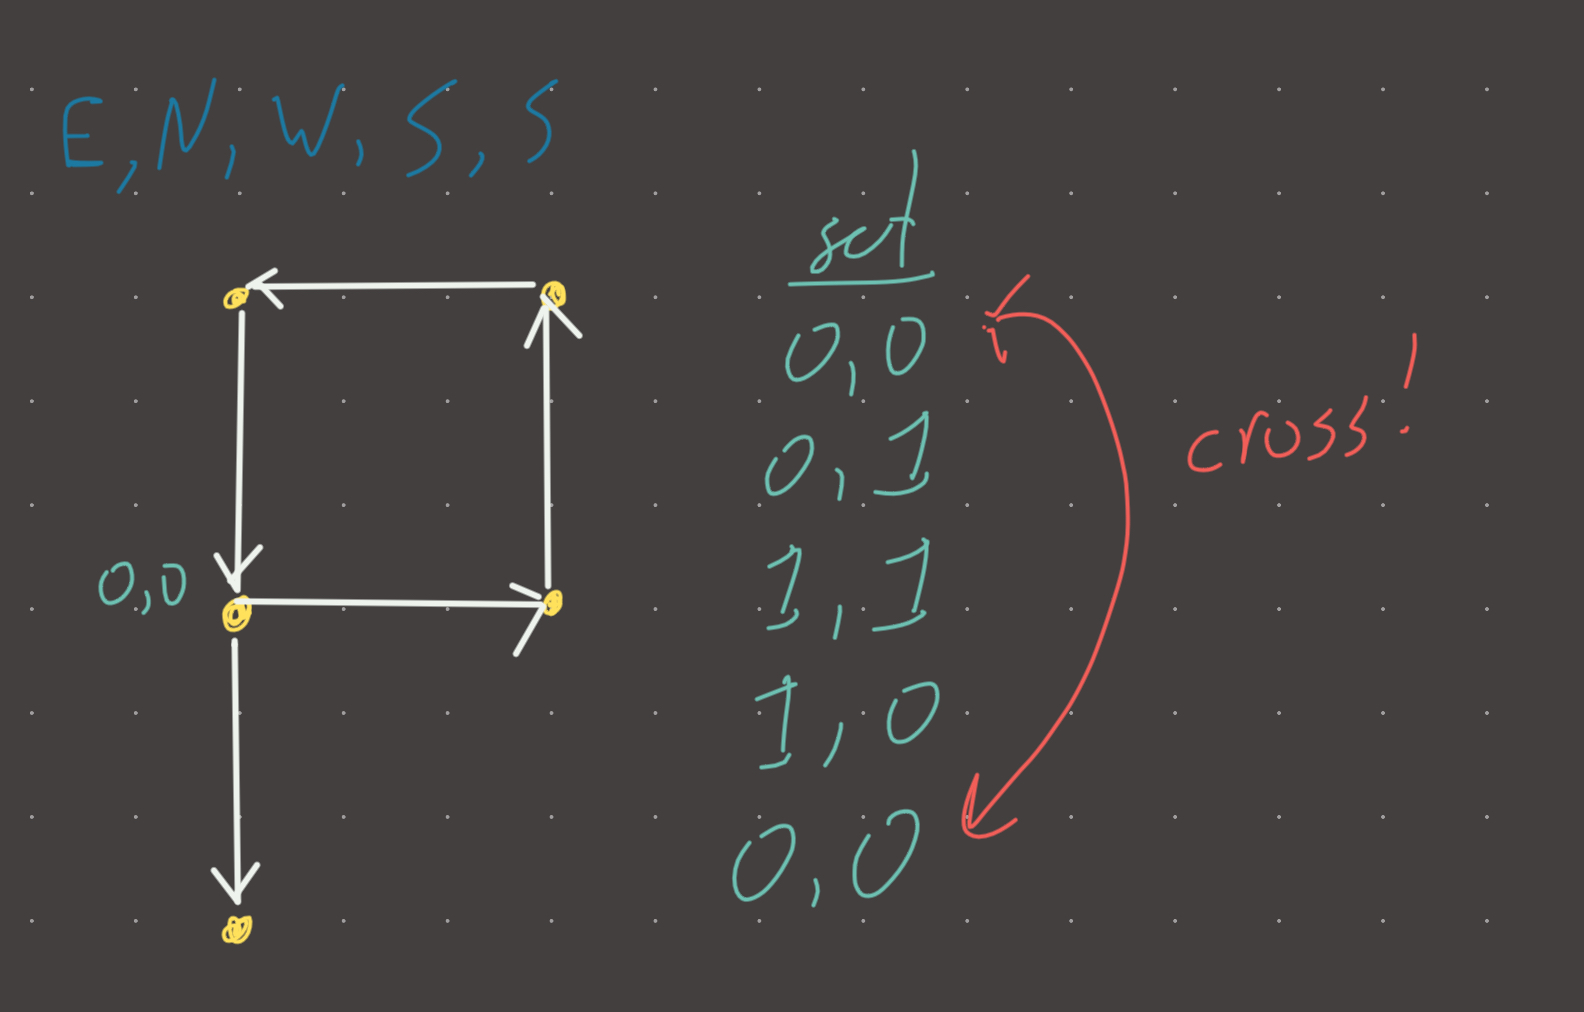 E, N, W, S, S
set
0,0
0,1
1,1
1,0
0,0
cross!
0,0